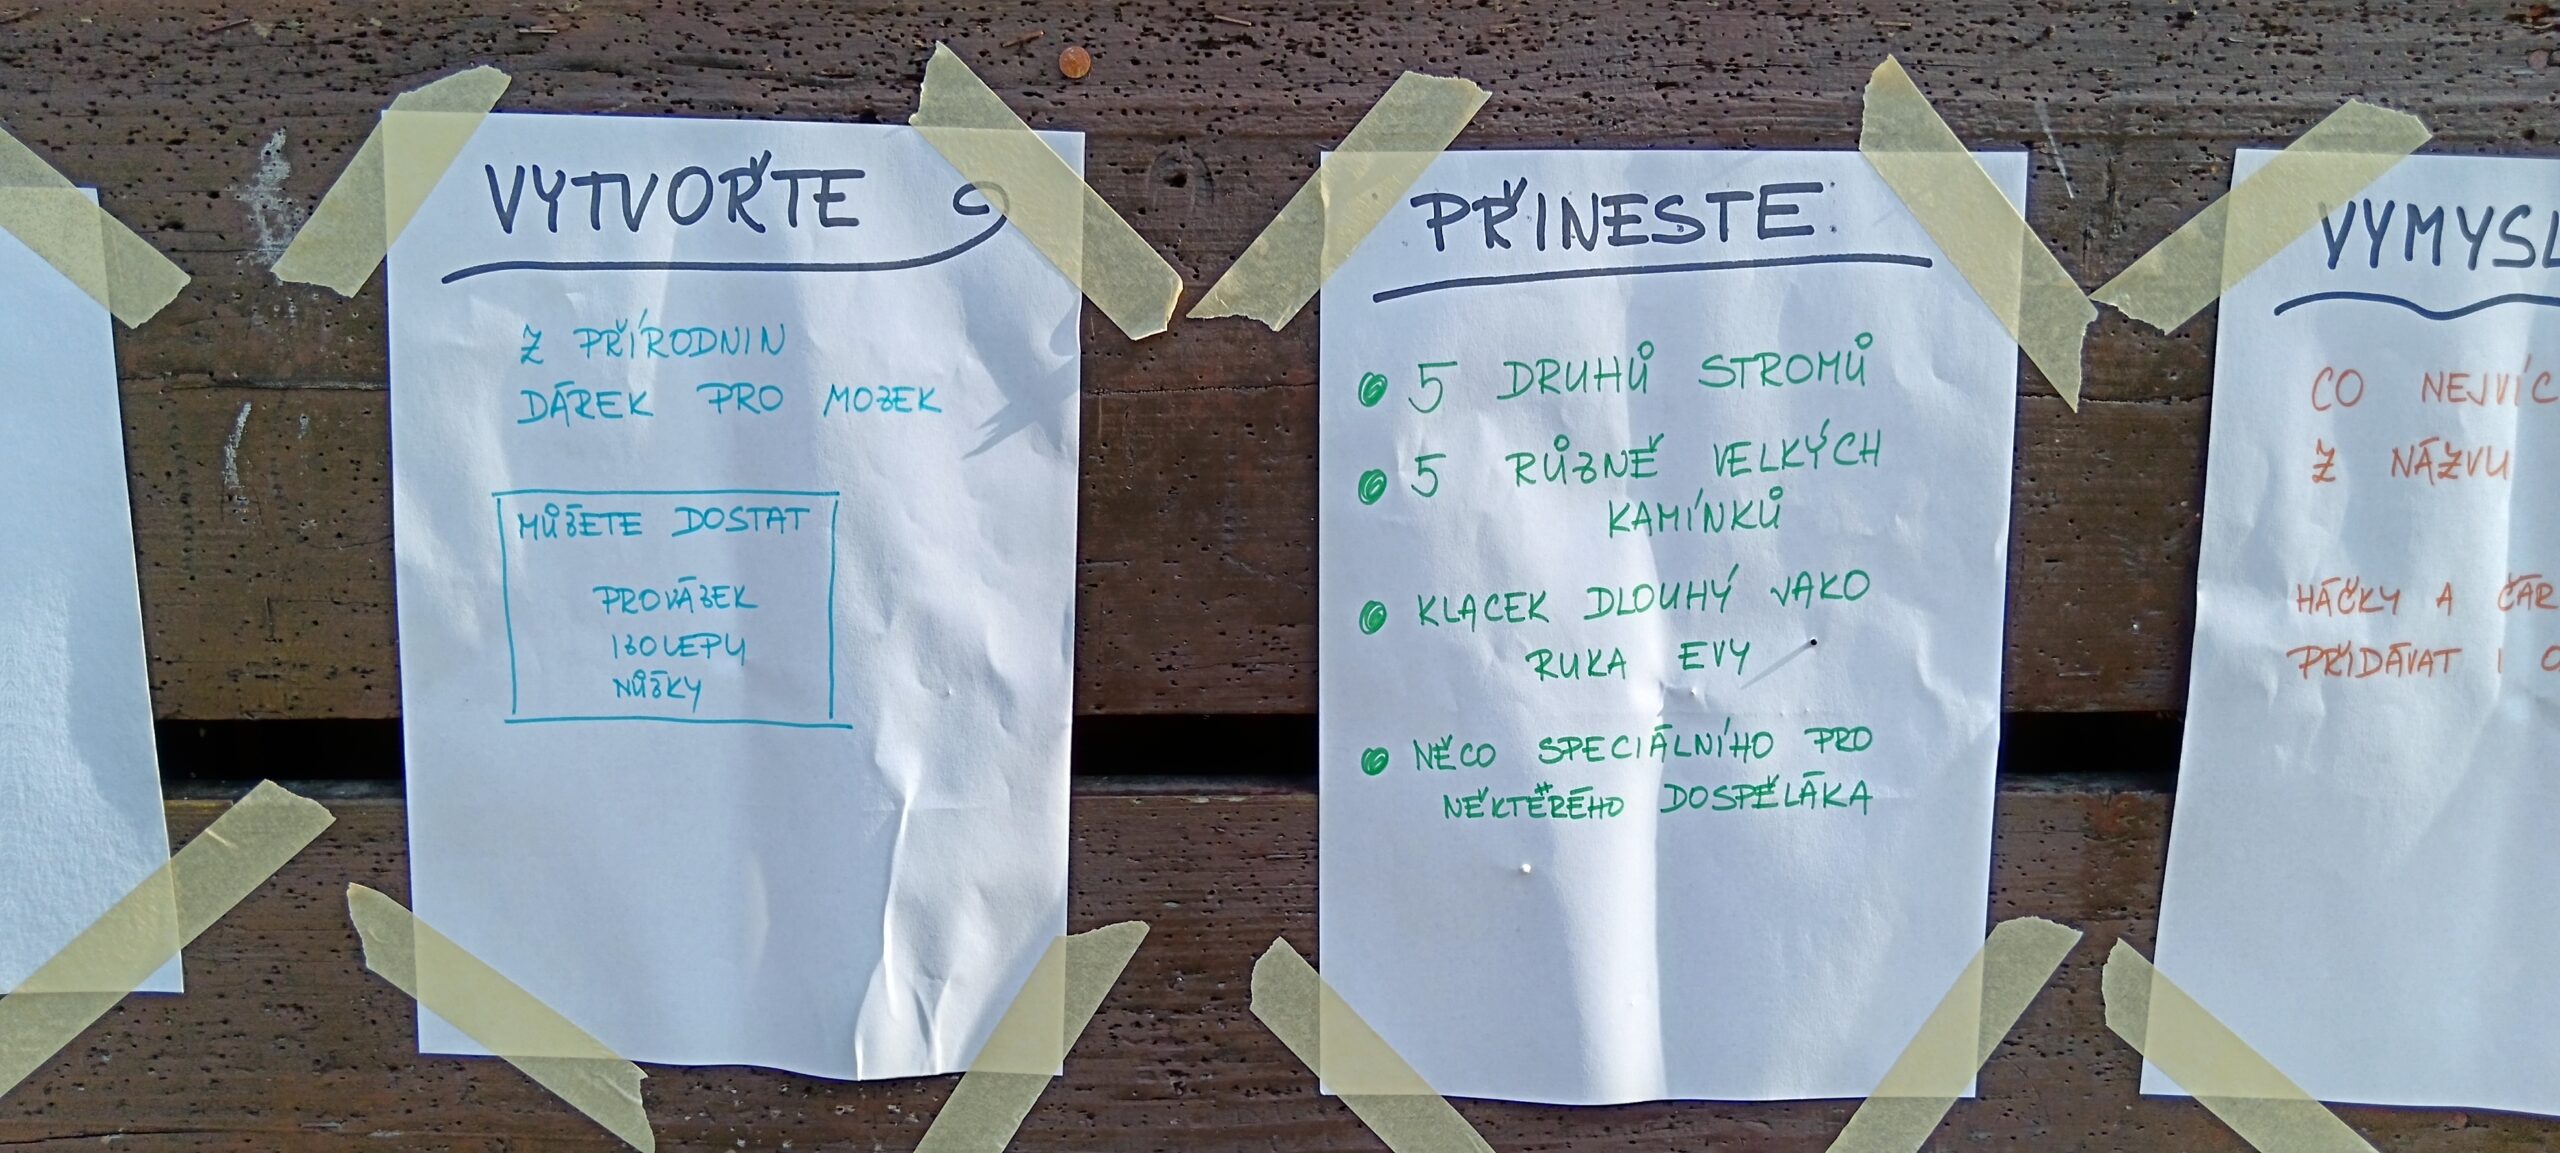 VYTVOŘTE
Z PŘÍRODNIN
DÁREK PRO MOZEK
MŮŽETE DOSTAT
PROVÁZEK
IZOLEPU
NŮŽKY
PŘINESTE:
5 DRUHŮ STROMŮ
5 RŮZNĚ VELKÝCH
KAMÍNKŮ
KLACEK DLOUHÝ JAKO
RUKA EVY
NĚCO SPECIÁLNÍHO PRO
NĚKTERÉHO DOSPĚLÁKA
VYMYSL
CO NEJVÍC
Z NÁZVU
HÁČKY A ČÁR
PŘIDÁVAT I O